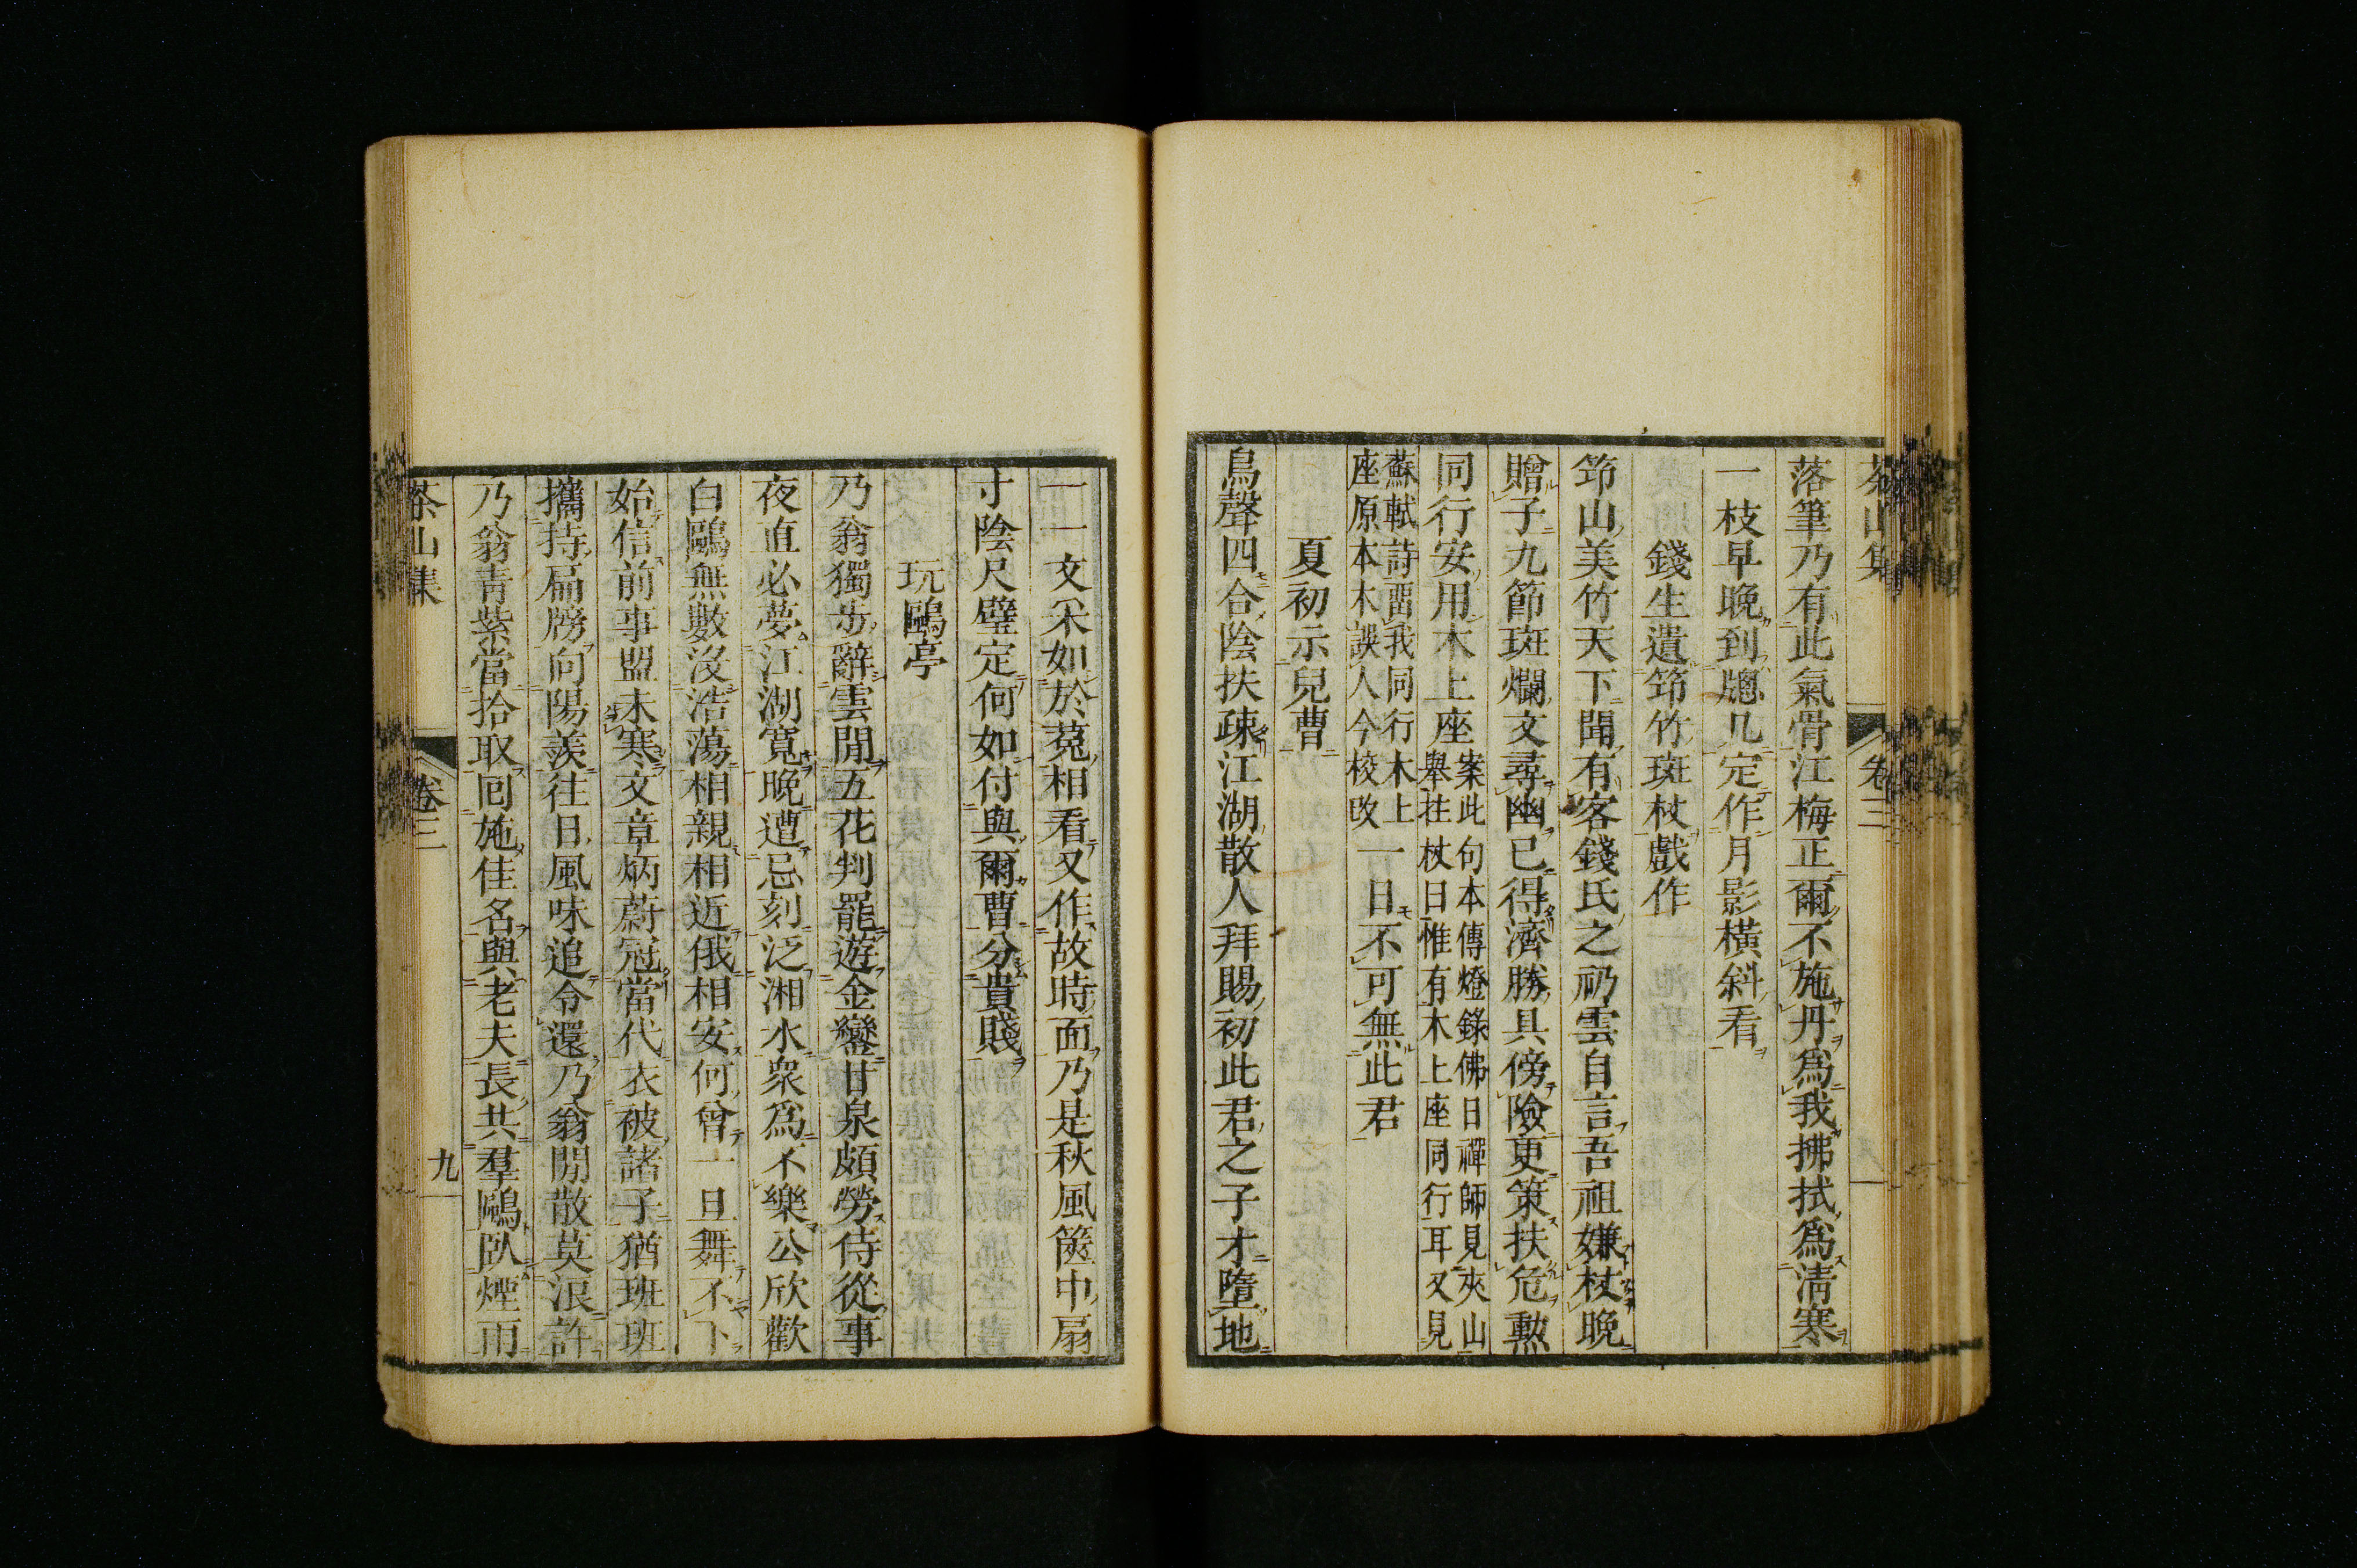 茶山集 卷三
落筆乃有此氣骨江梅正爾不施丹爲我拂拭爲淸寒
一枝早晚到牕几定作月影橫斜看
錢生遺笻竹斑杖戲作
笻山美竹天下聞有客錢氏之礽雲自言吾祖嫌杖晚
贈子九節斑斕文尋幽已得濟勝具傍險更策扶危勲
同行安用木上座案此句本傳燈錄佛日禪師見夾山
舉拄杖曰惟有木上座同行耳又見
蘇軾詩畱我同行木上
座原本木誤人今校改一日不可無此君
夏初示兒曹
鳥聲四合陰扶疎江湖散人拜賜初此君之子才墮地
一一文采如於菟相看又作故時面乃是秋風篋中扇
寸陰尺璧定何如付與爾曹分貴賤
玩鷗亭
乃翁獨步辭雲閒五花判罷遊金鑾甘泉頗勞侍從事
夜直必夢江湖寬晚遭忌刻泛湘水衆爲不樂公欣歡
白鷗無數沒浩蕩相親相近俄相安何曾一旦舞不下
始信前事盟未寒文章炳蔚冠當代衣被諸子猶班班
攜持扁牓向陽羨往日風味追令還乃翁閒散莫浪許
乃翁靑紫當拾取囘施佳名與老夫長共羣鷗臥煙雨
茶山集 卷三 九